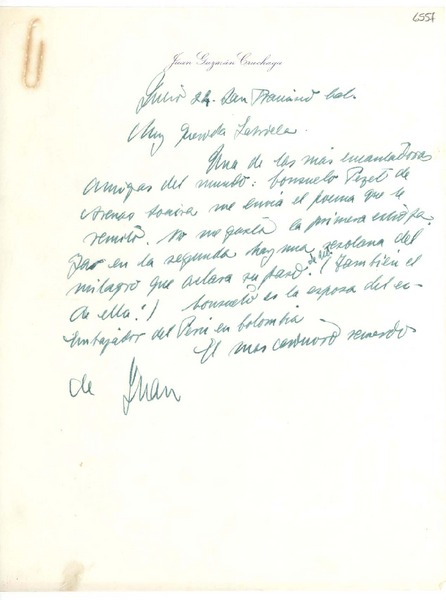 6557
Juan Guzmán Cruchaga
Julio 24. San Francisco Cal.
Muy querida Gabriela.
Una de las más encantadoras
amigas del mundo: Consuelo Pezet de
Arenas me envía el poema que le
remito. No me gusta la primera estrofa.
Pero en la segunda hay una del
milagro que aclara su paso. (También el
de ella.) Consuelo es la esposa del ex-
Embajador del Perú en Colombia
El mas cariñoso recuerdo
de Juan